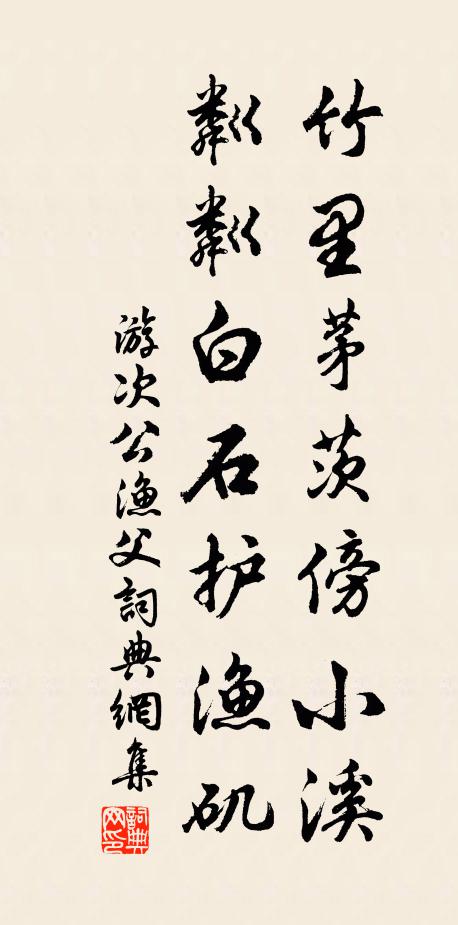 竹里茅茨傍小溪
粼粼白石护渔矶
游次公渔父詞典網集
詞典网印